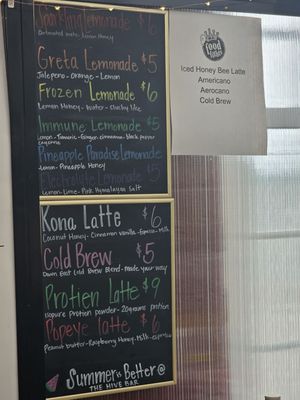 Sparkling Lemonade $6
Lemon Honey
Greta Lemonade $5
Jalepeno - Orange - Lemon
Frozen Lemonade $6
Lemon Honey - Water - Chunky Ice
Immune Lemonade $5
Lemon - Tumeric - Ginger - Cinnamon - Black pepper
cayenne
Pineapple Paradise Lemonade
Lemon - Pineapple Honey
Electrolyte Lemonade $5
Lemon - Lime - Pink Hymalayan Salt
Kona Latte $6
Coconut Honey - Cinnamon Vanilla - Espresso - Milk
Cold Brew $5
Down East Cold Brew Blend - Made your way
Protien Latte $9
Isopure Protien powder - 20grams protien
Popeye latte $6
Peanut butter - Raspberry Honey - Milk - espresso
Summer is Better @
THE HIVE BAR
food
Iced Honey Bee Latte
Americano
Aerocano
Cold Brew